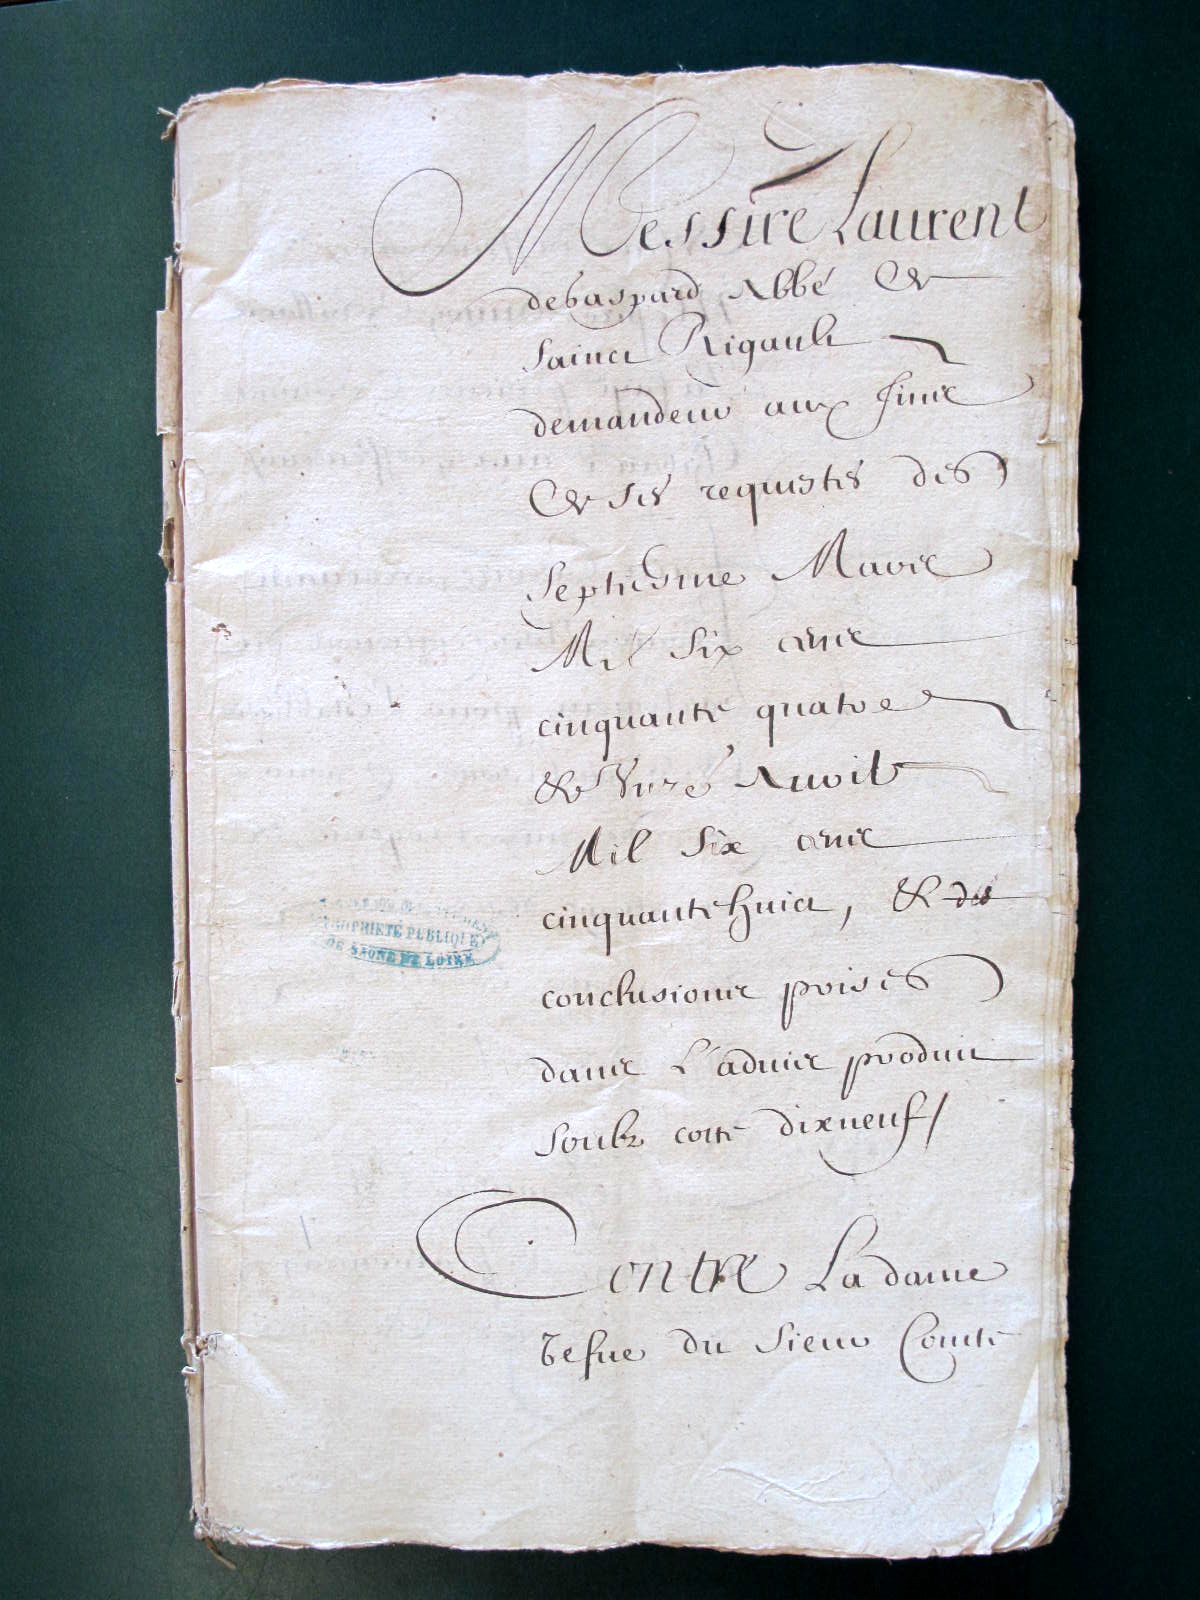 Messire Laurent
de Gaspard Abbé de
Sainct Rigault
demandeur aux fins
de ses requestes des
Septiesme Mars
Mil six cens
cinquante quatre
& Avril
Mil six cens
cinquante huict, & des
conclusions prises
dans L'aduis produit
Soubz cotte dixneuf /
Contre La dame
vefue du Sieur Comte
PROPRIETE PUBLIQUE
DE SAONE ET LOIRE